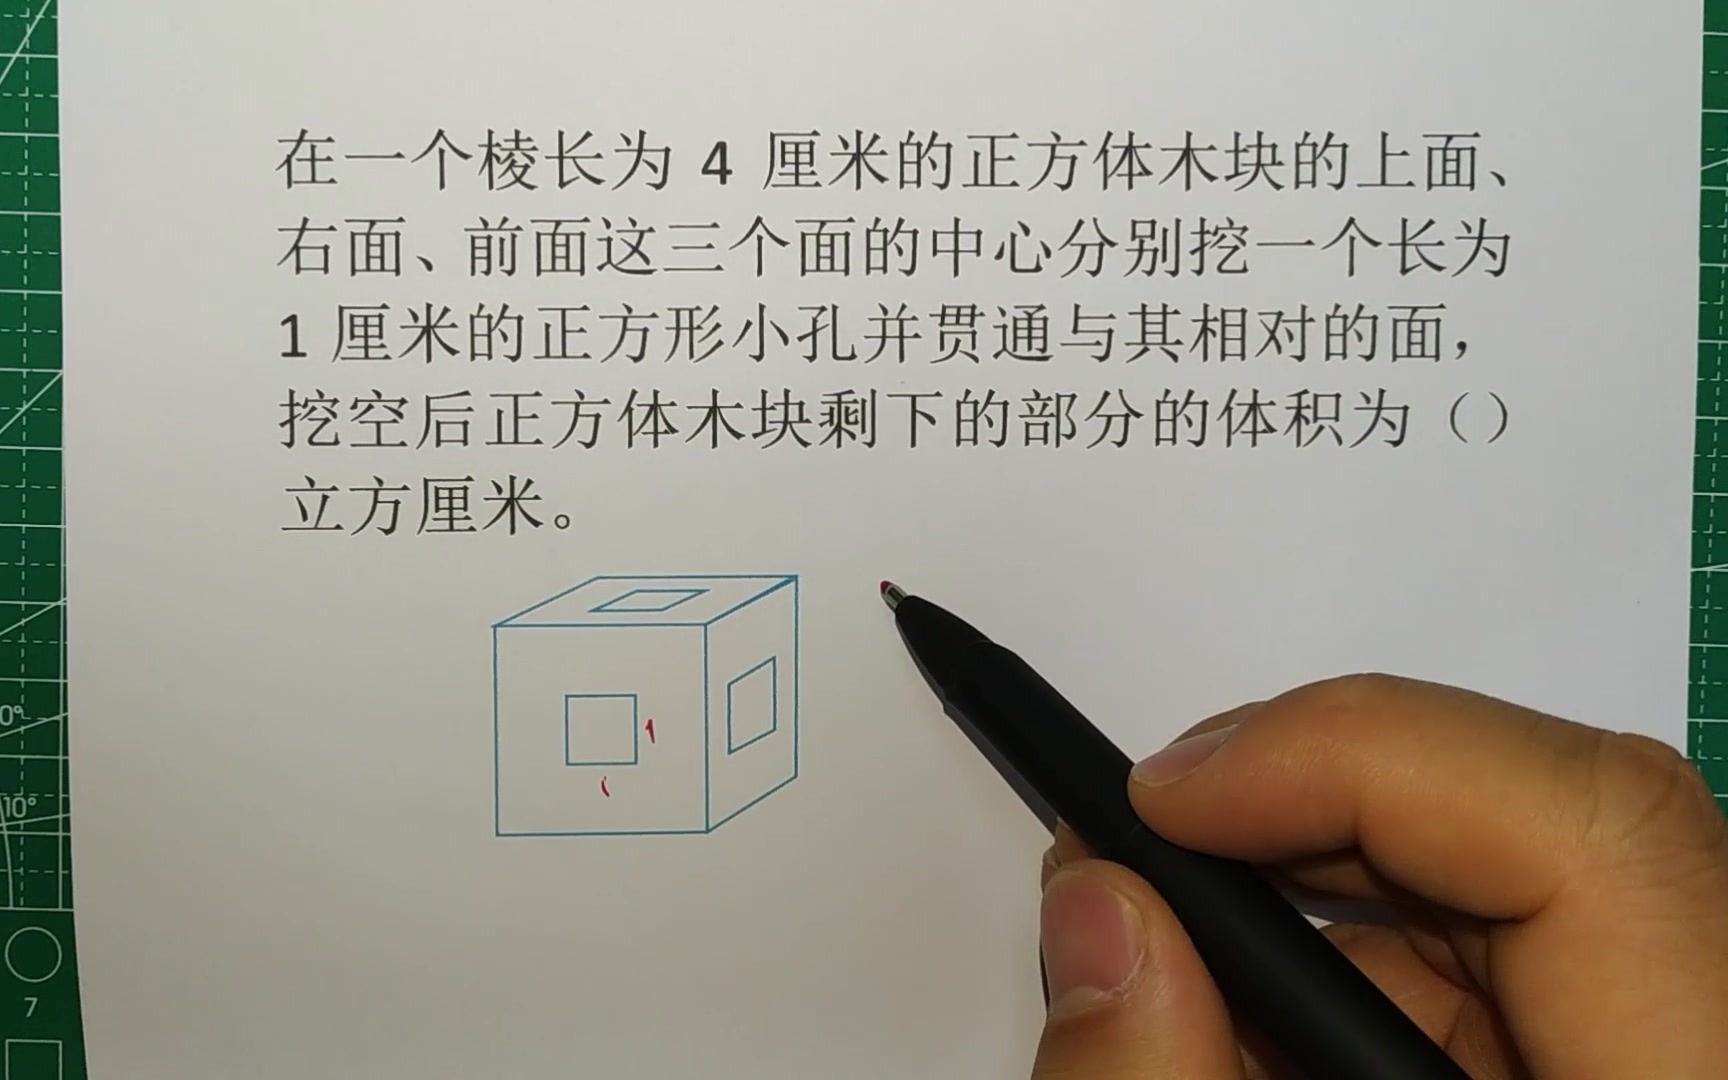 在一个棱长为 4 厘米的正方体木块的上面、
右面、前面这三个面的中心分别挖一个长为
1 厘米的正方形小孔并贯通与其相对的面，
挖空后正方体木块剩下的部分的体积为（）
立方厘米。
1
0°
10°
7